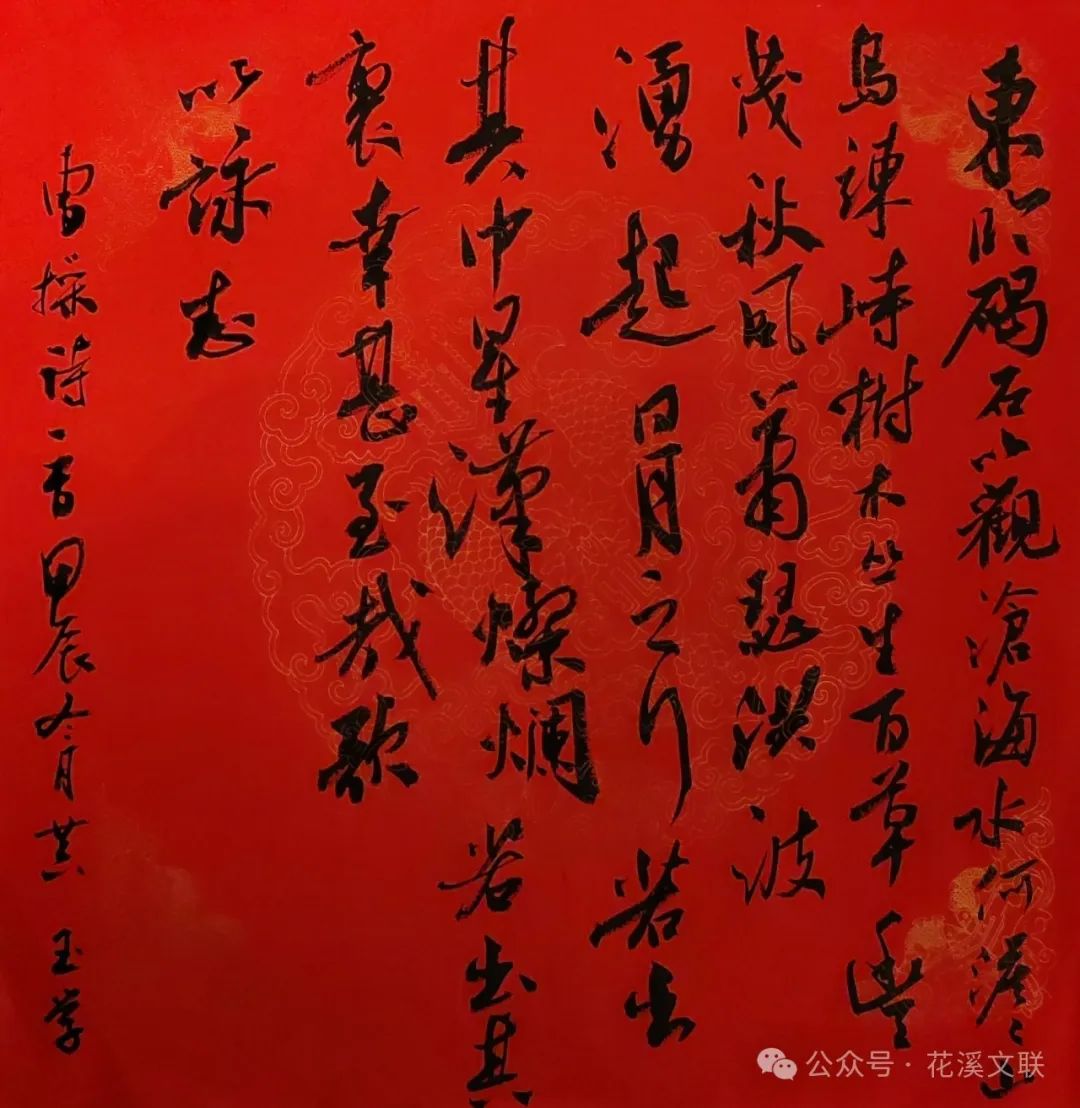 東臨碣石以觀滄海水何澹澹山
島竦峙樹木叢生百草豐
茂秋風蕭瑟洪波
湧起日月之行若出
其中星漢燦爛若出其
裏幸甚至哉歌
以詠志
曹操詩一首甲辰冬月 玉学
公众号·花溪文联